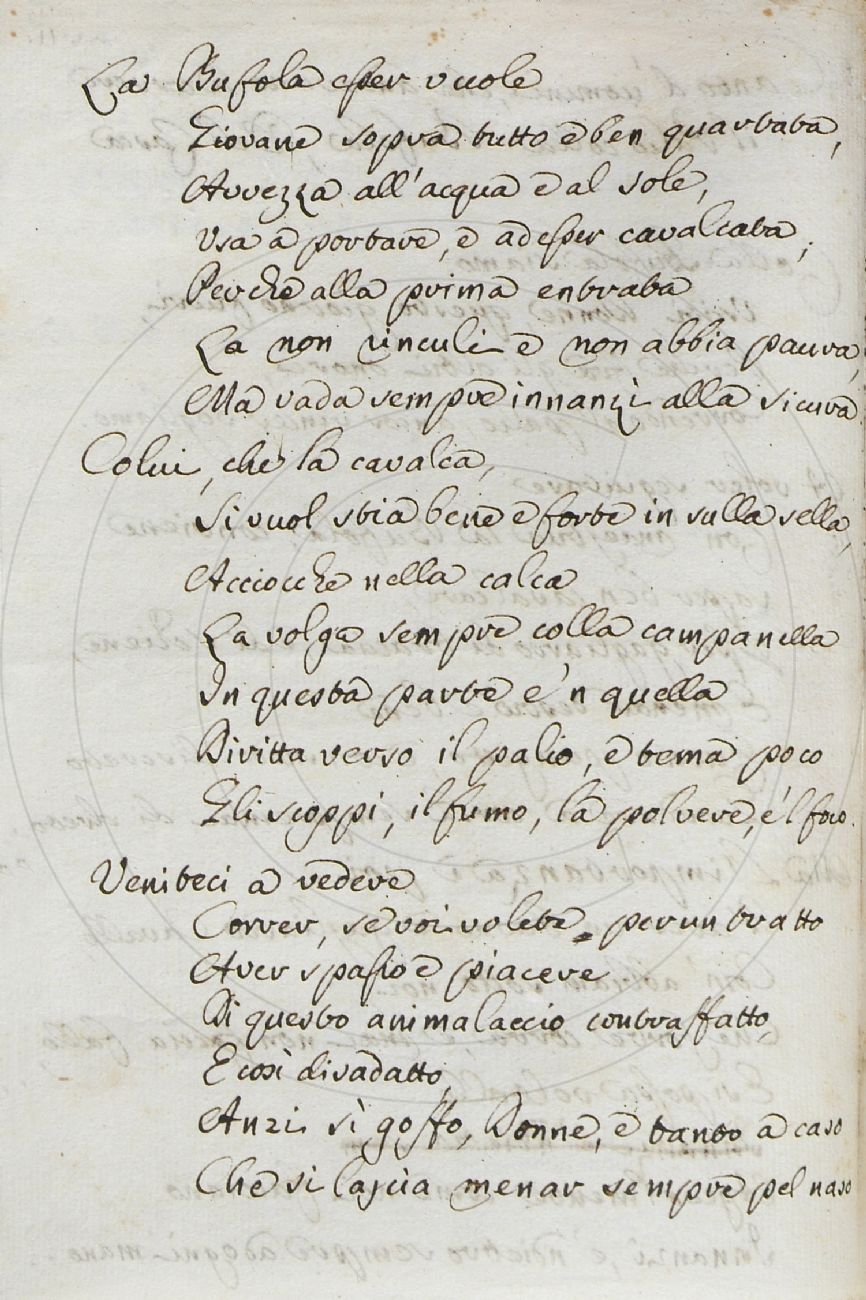 La Bufola esser vuole
Giovane sopra tutto e ben quartata,
Avvezza all'acqua e al sole,
Usa a portare, e ad esser cavalcata;
Perchè alla prima entrata
La non rinculi e non abbia paura,
Ma vada sempre innanzi alla sicura
Colui, che la cavalca,
Si vuol stia bene e forte in sulla sella,
Acciocche nella calca
La volga sempre colla campanella
In questa parte e 'n quella
Diritta verso il palio, e tema poco
Gli scoppi, il fumo, la polvere, e 'l foco.
Veniteci a vedere
Correr, se voi volete per un tratto
Aver spasso e piacere
Di questo animalaccio contraffatto,
E così disadatto,
Anzi sì goffo, Donne, e tanto a caso
Che si lascia menar sempre pel naso